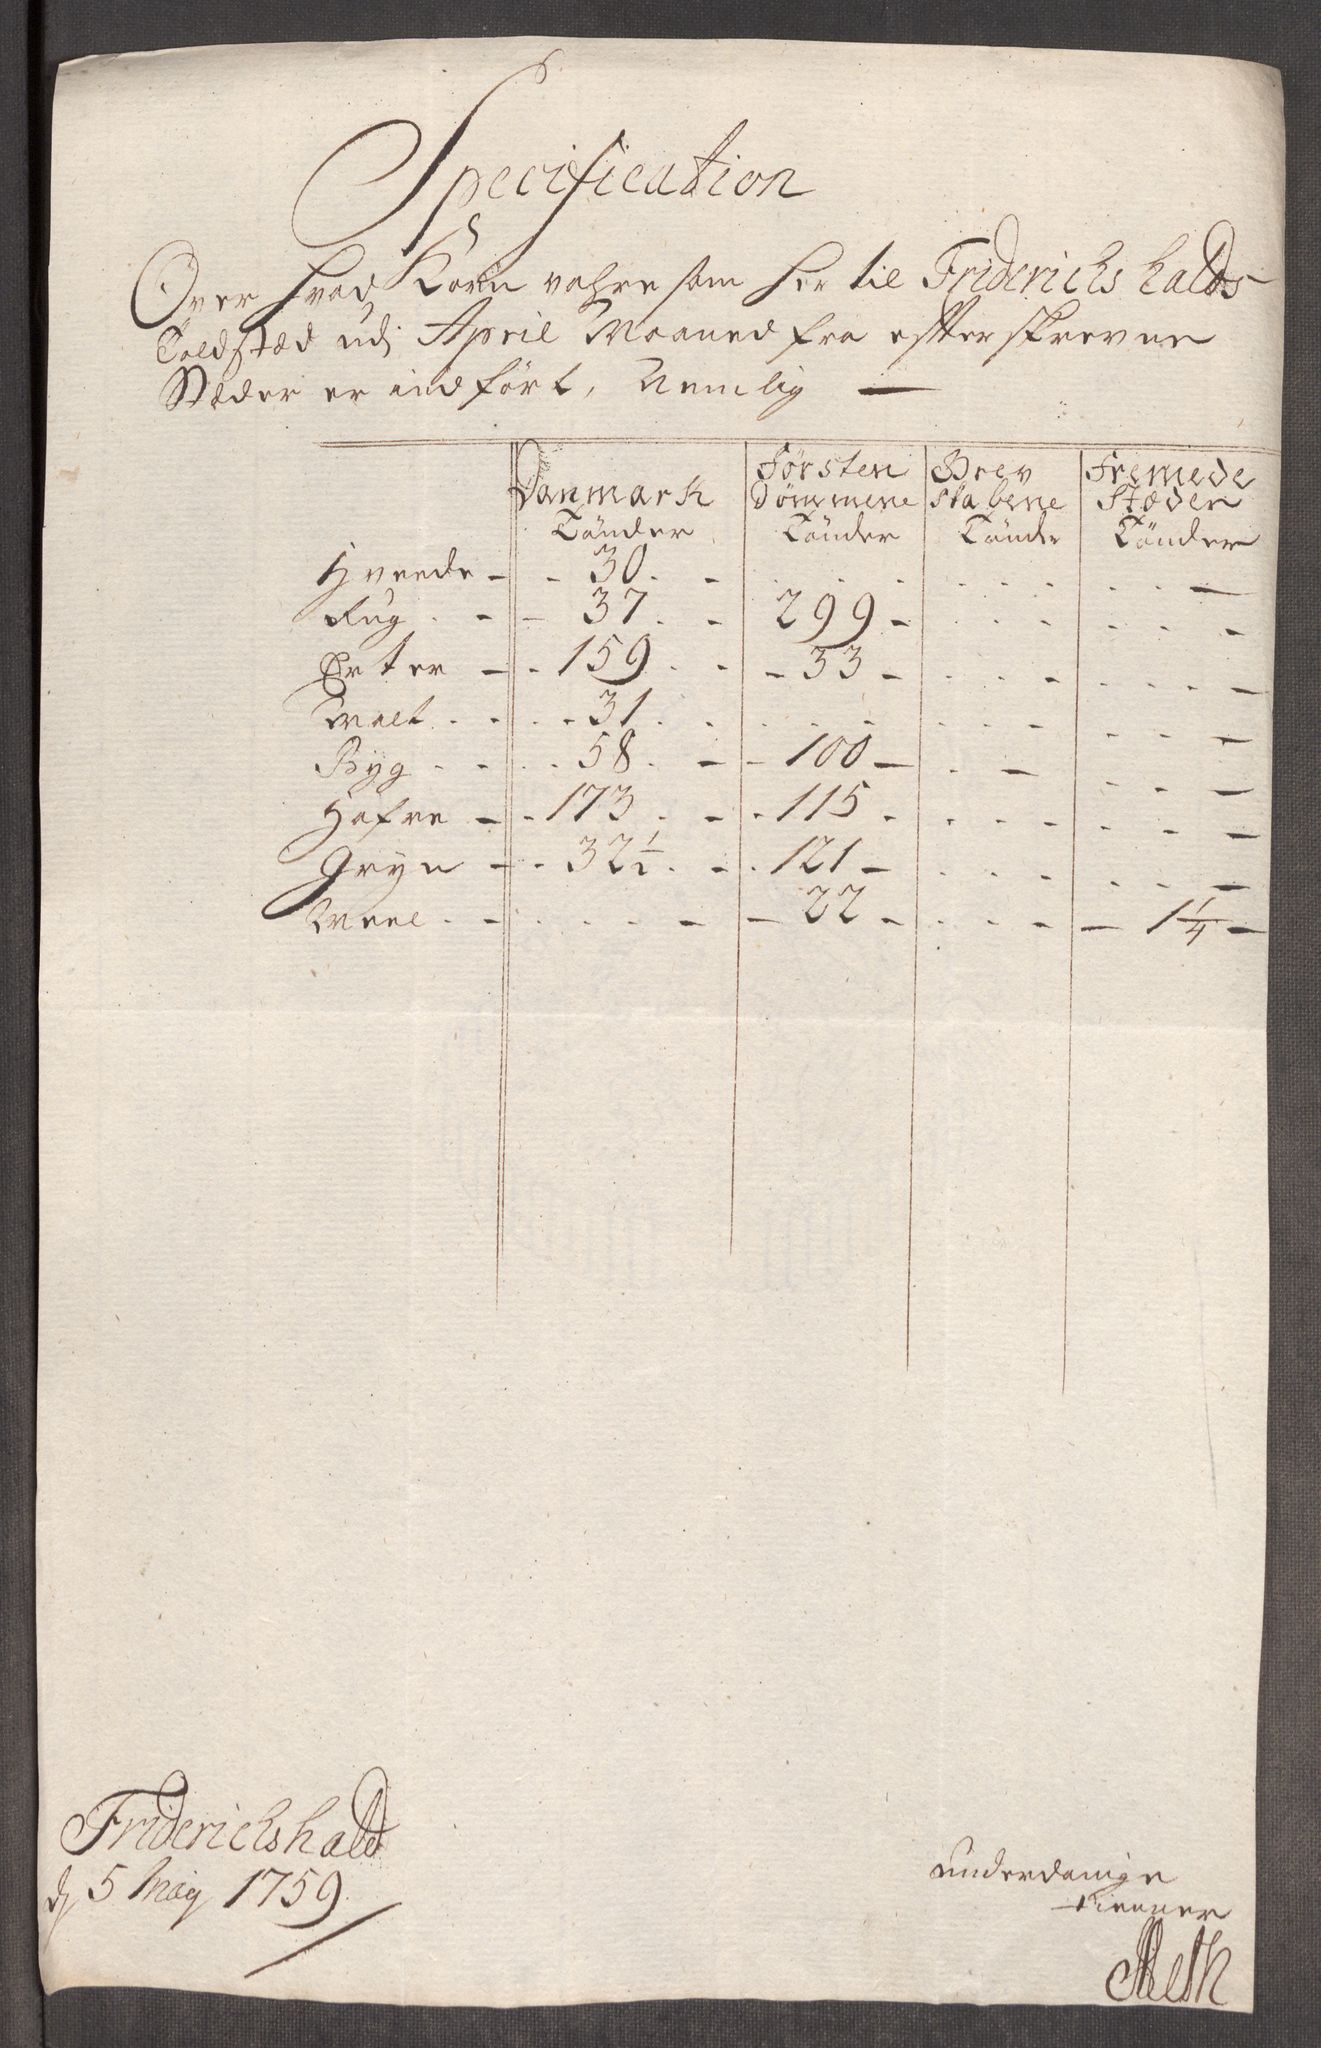 Specification
Over hvad Korn vahre som her til Friderichshalds
Toldstæd udj April Maaned fra efterskrevne
Stæder er indført, Nemlig —
Danmark Tønder | Førsten Dømmene Tønder | Grev skabene Tønder | Fremede Stæder Tønder
Hveede - - 30. - . . . . . . . . . . -
Rug . - - 37 . - 299 - . . . - . . . -
Erter - - 159 . - - 33 - . . . - . . . -
Malt . . . . 31 . . . . . . . . . - . . . -
Byg . - . . 58 . - - 100 - . - . . . -
Hafre - . 173 . - . 115 . . . . - . . - -
Gryn - . 32 1/2 . - . 121 - . . . - . . . -
Meel . - . . . . - - 22 - . . . - - 1 1/4 -
Friderichshald
d 5 Maij 1759
underdanige
tienner